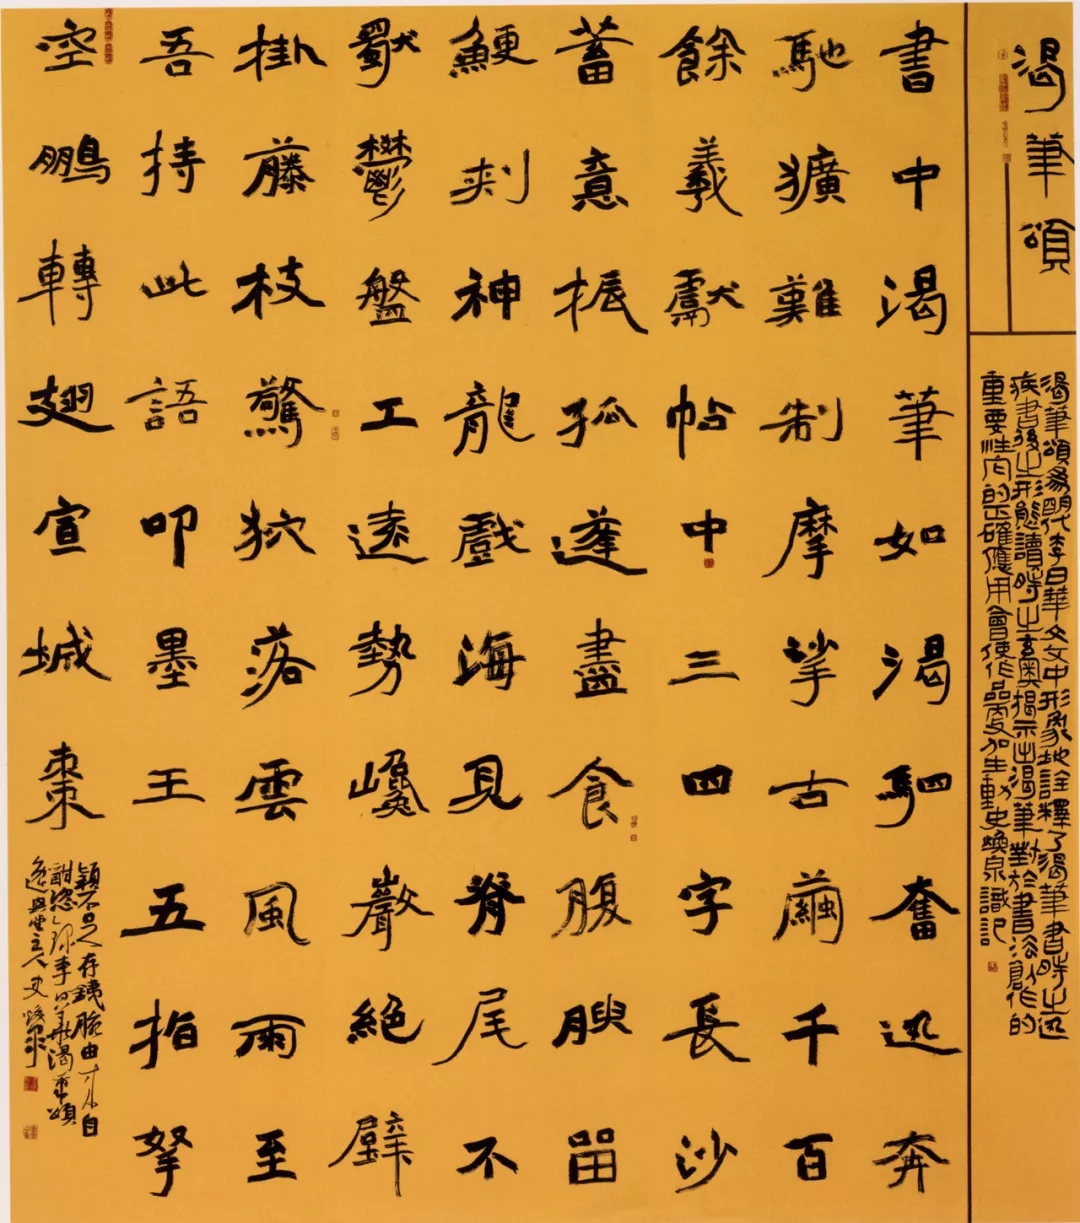 渴筆頌
渴筆頌為明代李日華文文中形象地詮釋了渴筆書時之迅
疾書後之形態讀時之玄奧揭示出渴筆對於書法創作的
重要性它的正確應用會使作品更加生動史煥泉識記
書中渴筆如渴駟奮迅奔
馳獷難制摩挲古繭千百
餘羲獻帖中三四字長沙
蓄意振孤蓬盡食腹腴留
鯁刺神龍戲海見脊尾不
獨鬱盤工遠勢巉巖絕壁
掛藤枝驚狖落雲風雨至
吾持此語叩墨王五指拏
空鵬轉翅宣城棗
穎不足存鐵腕由來自
酣恣錄李日華渴筆頌
主人史煥泉